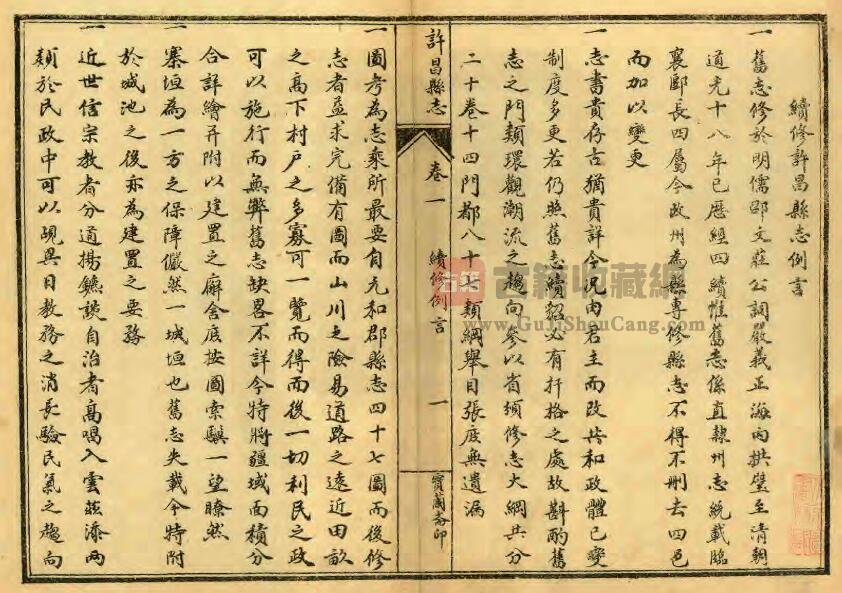 續修許昌縣志例言
一舊志修於明儒邵文莊公詞嚴義正海內拱璧至清朝
道光十八年已歷經四續惟舊志係直隸州志統載臨
襄郾長四屬今改州為縣專修縣志不得不刪去四邑
而加以變更
一志書貴存古猶貴詳今況由君主而改共和政體已變
制度多更若仍照舊志續貂必有扞格之處故斟酌舊
志之門類環觀潮流之趨向參以省頒修志大綱共分
二十卷十四門都八十七類綱舉目張庶無遺漏
許昌縣志
卷一
續修例言
一
寶蘭齋印
一圖考為志乘所最要自元和郡縣志四十七圖而後修
志者益求完備有圖而山川之險易道路之遠近田畝
之高下村戶之多寡可一覽而得而後一切利民之政
可以施行而無弊舊志缺畧不詳今特將疆域面積分
合詳繪并附以建置之廨舍庶按圖索驥一望瞭然
一寨垣為一方之保障儼然一城垣也舊志失載今特附
於城池之後亦為建置之要務
一近世信宗教者分道揚鑣談自治者高唱入雲茲添兩
類於民政中可以覘異日教務之消長驗民氣之趨向
古籍
古籍收藏網
www.GuJiShouCang.com